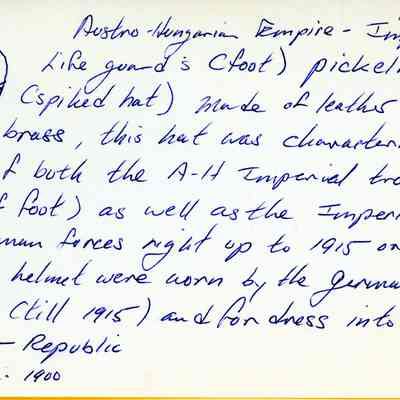 Austro-Hungarian Empire - Im
Life guard's (foot) pickel
(spiked hat) made of leather
brass, this hat was character
f both the A-H Imperial tro
f foot) as well as the Imperi
man forces right up to 1915 or
helmet were worn by the German
(till 1915) and for dress into
- Republic
. 1900